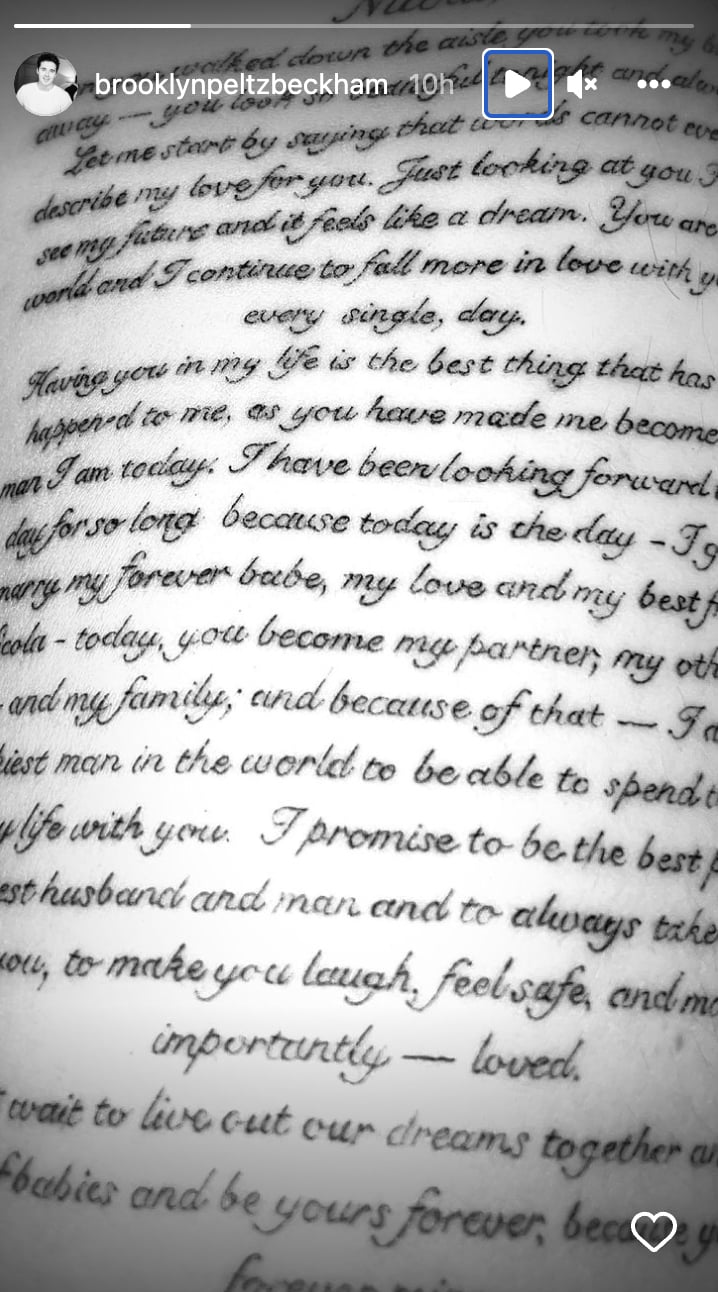 brooklynpeltzbeckham 10h
walked down the aisle, you took my
away — you look so tonight and
Let me start by saying that words cannot eve
describe my love for you. Just looking at you I
see my future and it feels like a dream. You are
world and I continue to fall more in love with y
every single, day.
Having you in my life is the best thing that has
happened to me, as you have made me become
man I am today. I have been looking forward
day for so long because today is the day - I g
marry my forever babe, my love and my best f
icola - today, you become my partner, my oth
and my family; and because of that — I a
iest man in the world to be able to spend t
y life with you. I promise to be the best p
est husband and man and to always take
you, to make you laugh, feel safe, and mo
importantly — loved.
t wait to live out our dreams together an
f babies and be yours forever, because y
forever